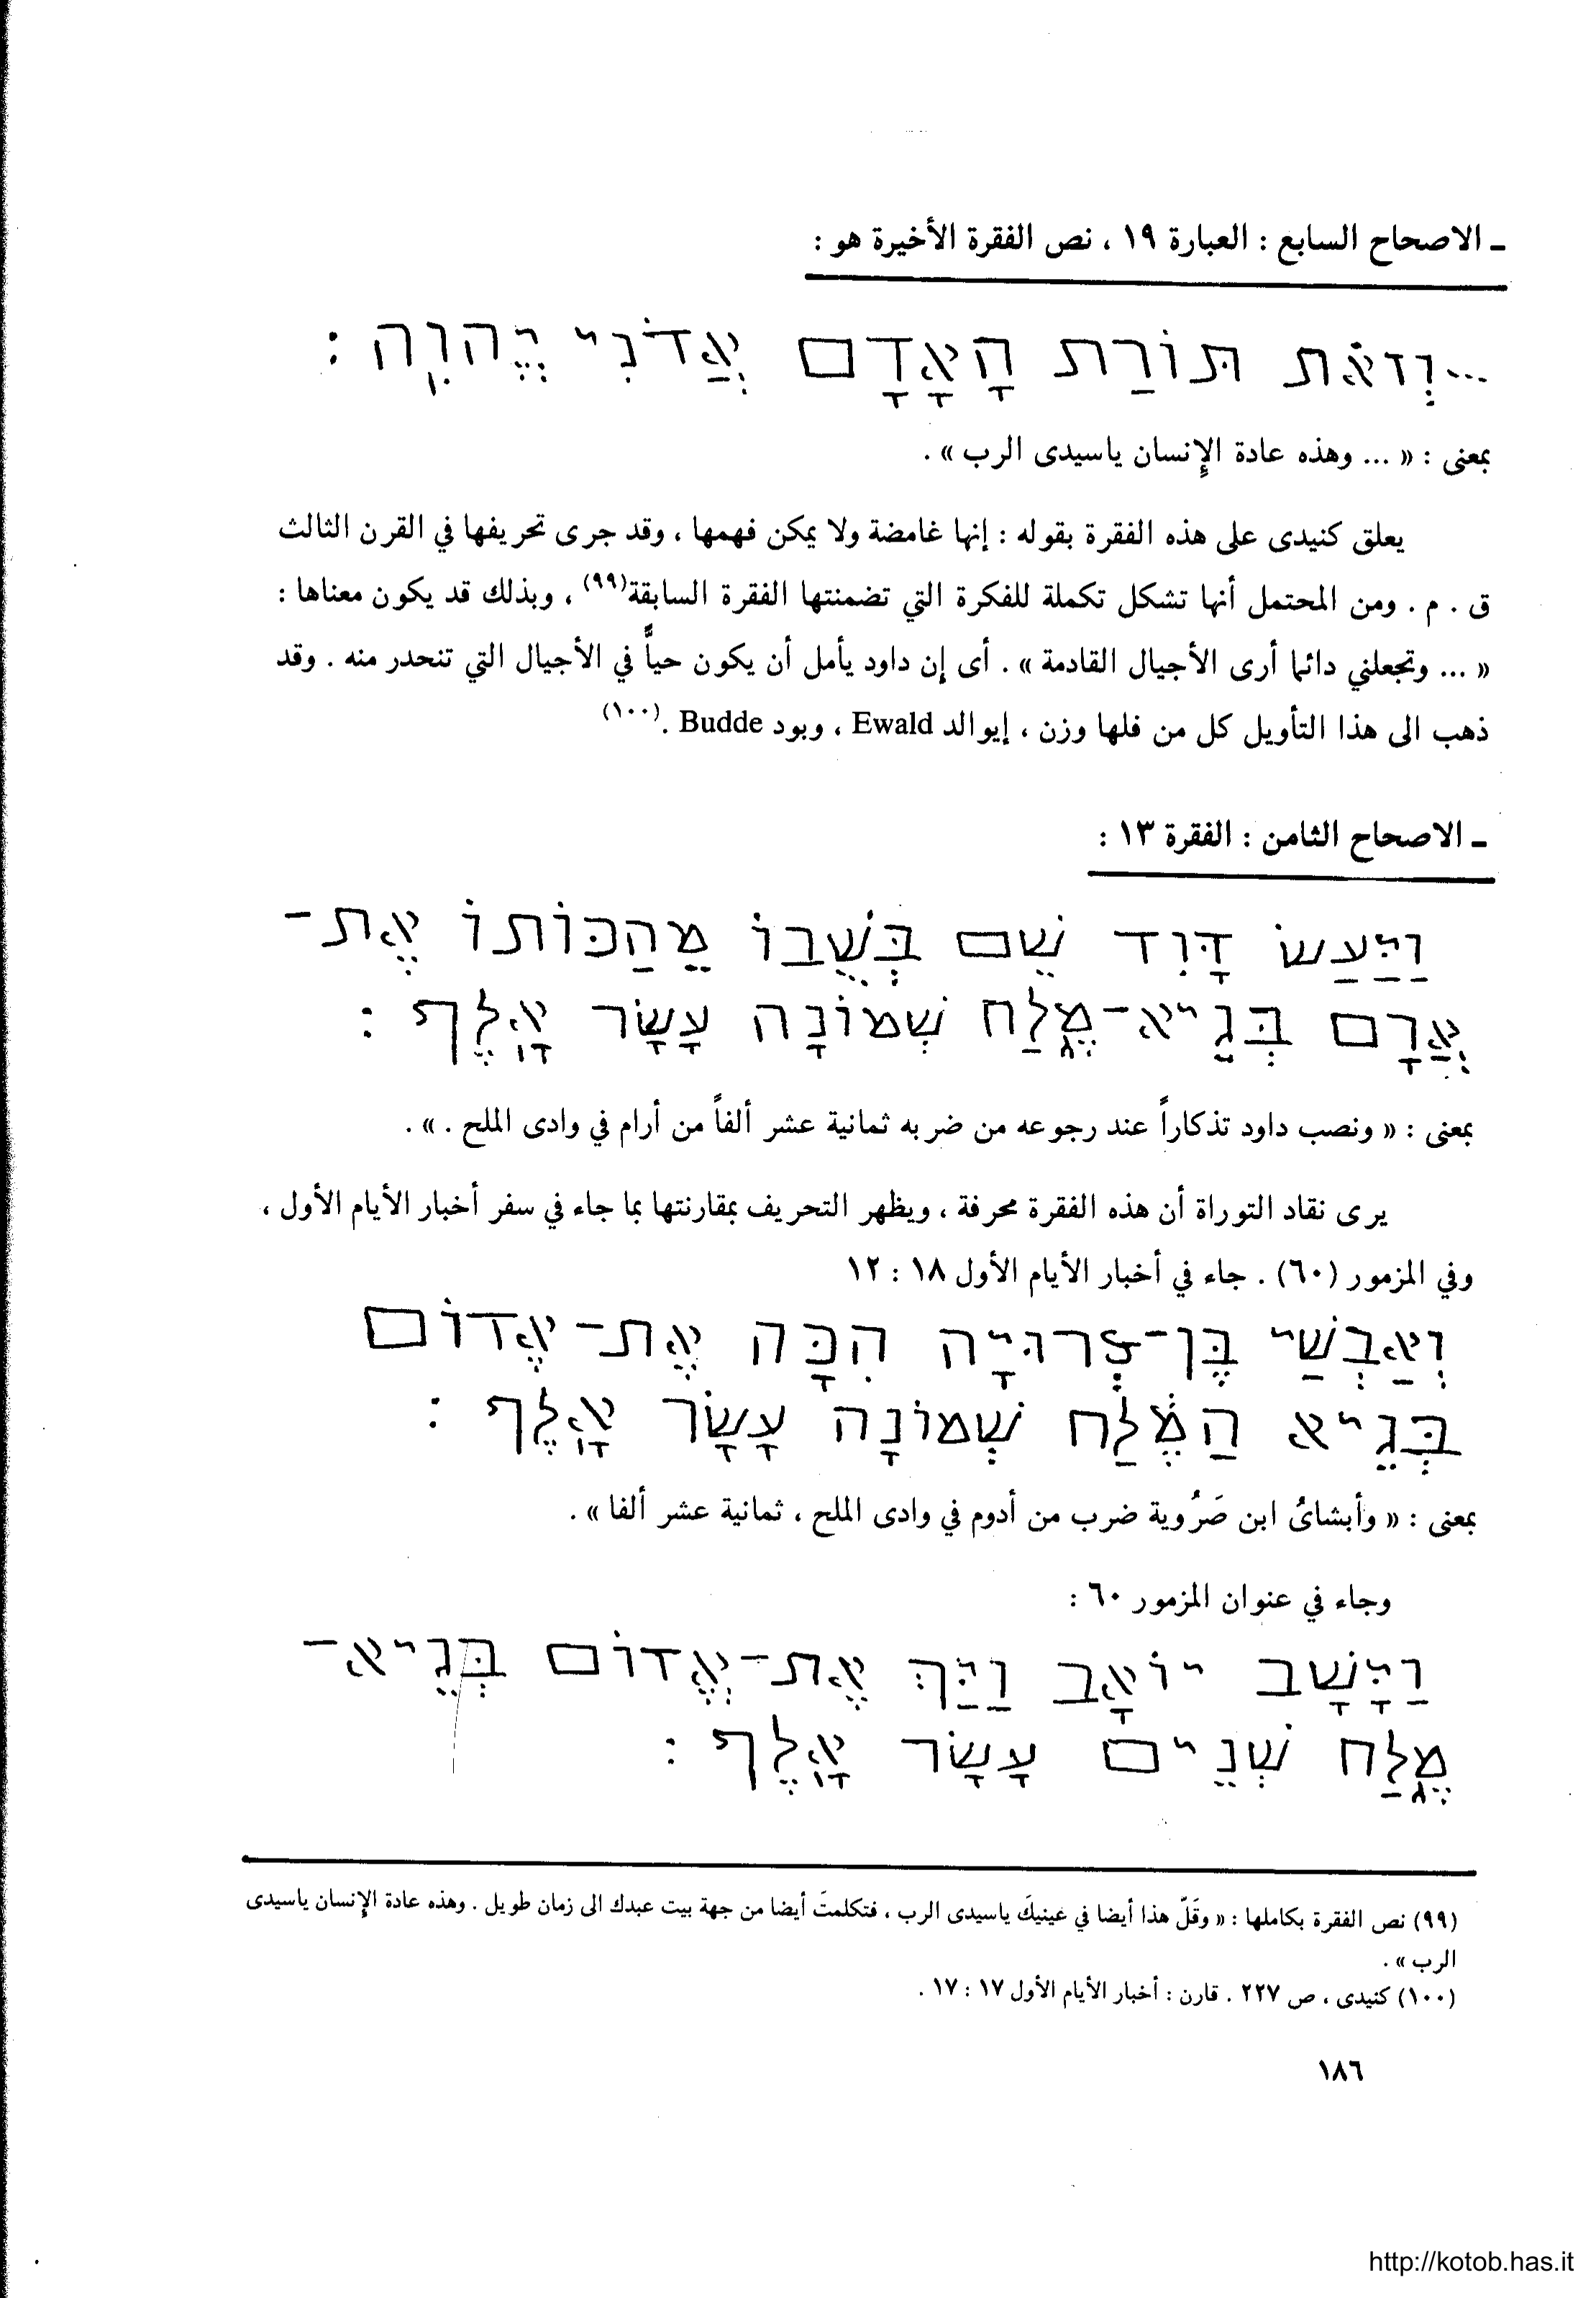 ـ الاصحاح السابع : العبارة ١٩ ، نص الفقرة الأخيرة هو :
...וְזֹאת תּוֹרַת הָאָדָם אֲדֹנָי יֱהוִֽה :
بمعنى : « ... وهذه عادة الإنسان ياسيدى الرب » .
يعلق كنيدى على هذه الفقرة بقوله : إنها غامضة ولا يمكن فهمها ، وقد جرى تحريفها في القرن الثالث
ق . م . ومن المحتمل أنها تشكل تكملة للفكرة التي تضمنتها الفقرة السابقة(٩٩) ، وبذلك قد يكون معناها :
« ... وتجعلني دائما أرى الأجيال القادمة » . أى إن داود يأمل أن يكون حياًّ في الأجيال التي تنحدر منه . وقد
ذهب الى هذا التأويل كل من فلها وزن ، إيوالد Ewald ، وبود Budde .(١٠٠)
ـ الاصحاح الثامن : الفقرة ١٣ :
וַיַּעַשׂ דָּוִד שֵׁם בְּשֻׁבוֹ מֵהַכּוֹתוֹ אֶת-
אֲרָם בְּגֵיא-מֶלַח שְׁמוֹנָה עָשָׂר אָֽלֶף :
بمعنى : « ونصب داود تذكاراً عند رجوعه من ضربه ثمانية عشر ألفاً من أرام في وادى الملح . » .
يرى نقاد التوراة أن هذه الفقرة محرفة ، ويظهر التحريف بمقارنتها بما جاء في سفر أخبار الأيام الأول ،
وفي المزمور (٦٠) . جاء في أخبار الأيام الأول ١٨ : ١٢
וְאַבְשַׁי בֶּן-צְרוּיָה הִכָּה אֶת-אֱדוֹם
בְּגֵיא הַמֶּלַח שְׁמוֹנָה עָשָׂר אָֽלֶף :
بمعنى : « وأبشاىُ ابن صَرُوية ضرب من أدوم في وادى الملح ، ثمانية عشر ألفا » .
وجاء في عنوان المزمور ٦٠ :
וַיָּשָׁב יוֹאָב וַיַּךְ אֶת-אֱדוֹם בְּגֵיא-
מֶלַח שְׁנֵים עָשָׂר אָֽלֶף :
(٩٩) نص الفقرة بكاملها : « وقَلّ هذا أيضا في عينيكَ ياسيدى الرب ، فتكلمتَ أيضا من جهة بيت عبدك الى زمان طويل . وهذه عادة الإنسان ياسيدى
الرب » .
(١٠٠) كنيدى ، ص ٢٢٧ . قارن : أخبار الأيام الأول ١٧ : ١٧ .
١٨٦
http://kotob.has.it